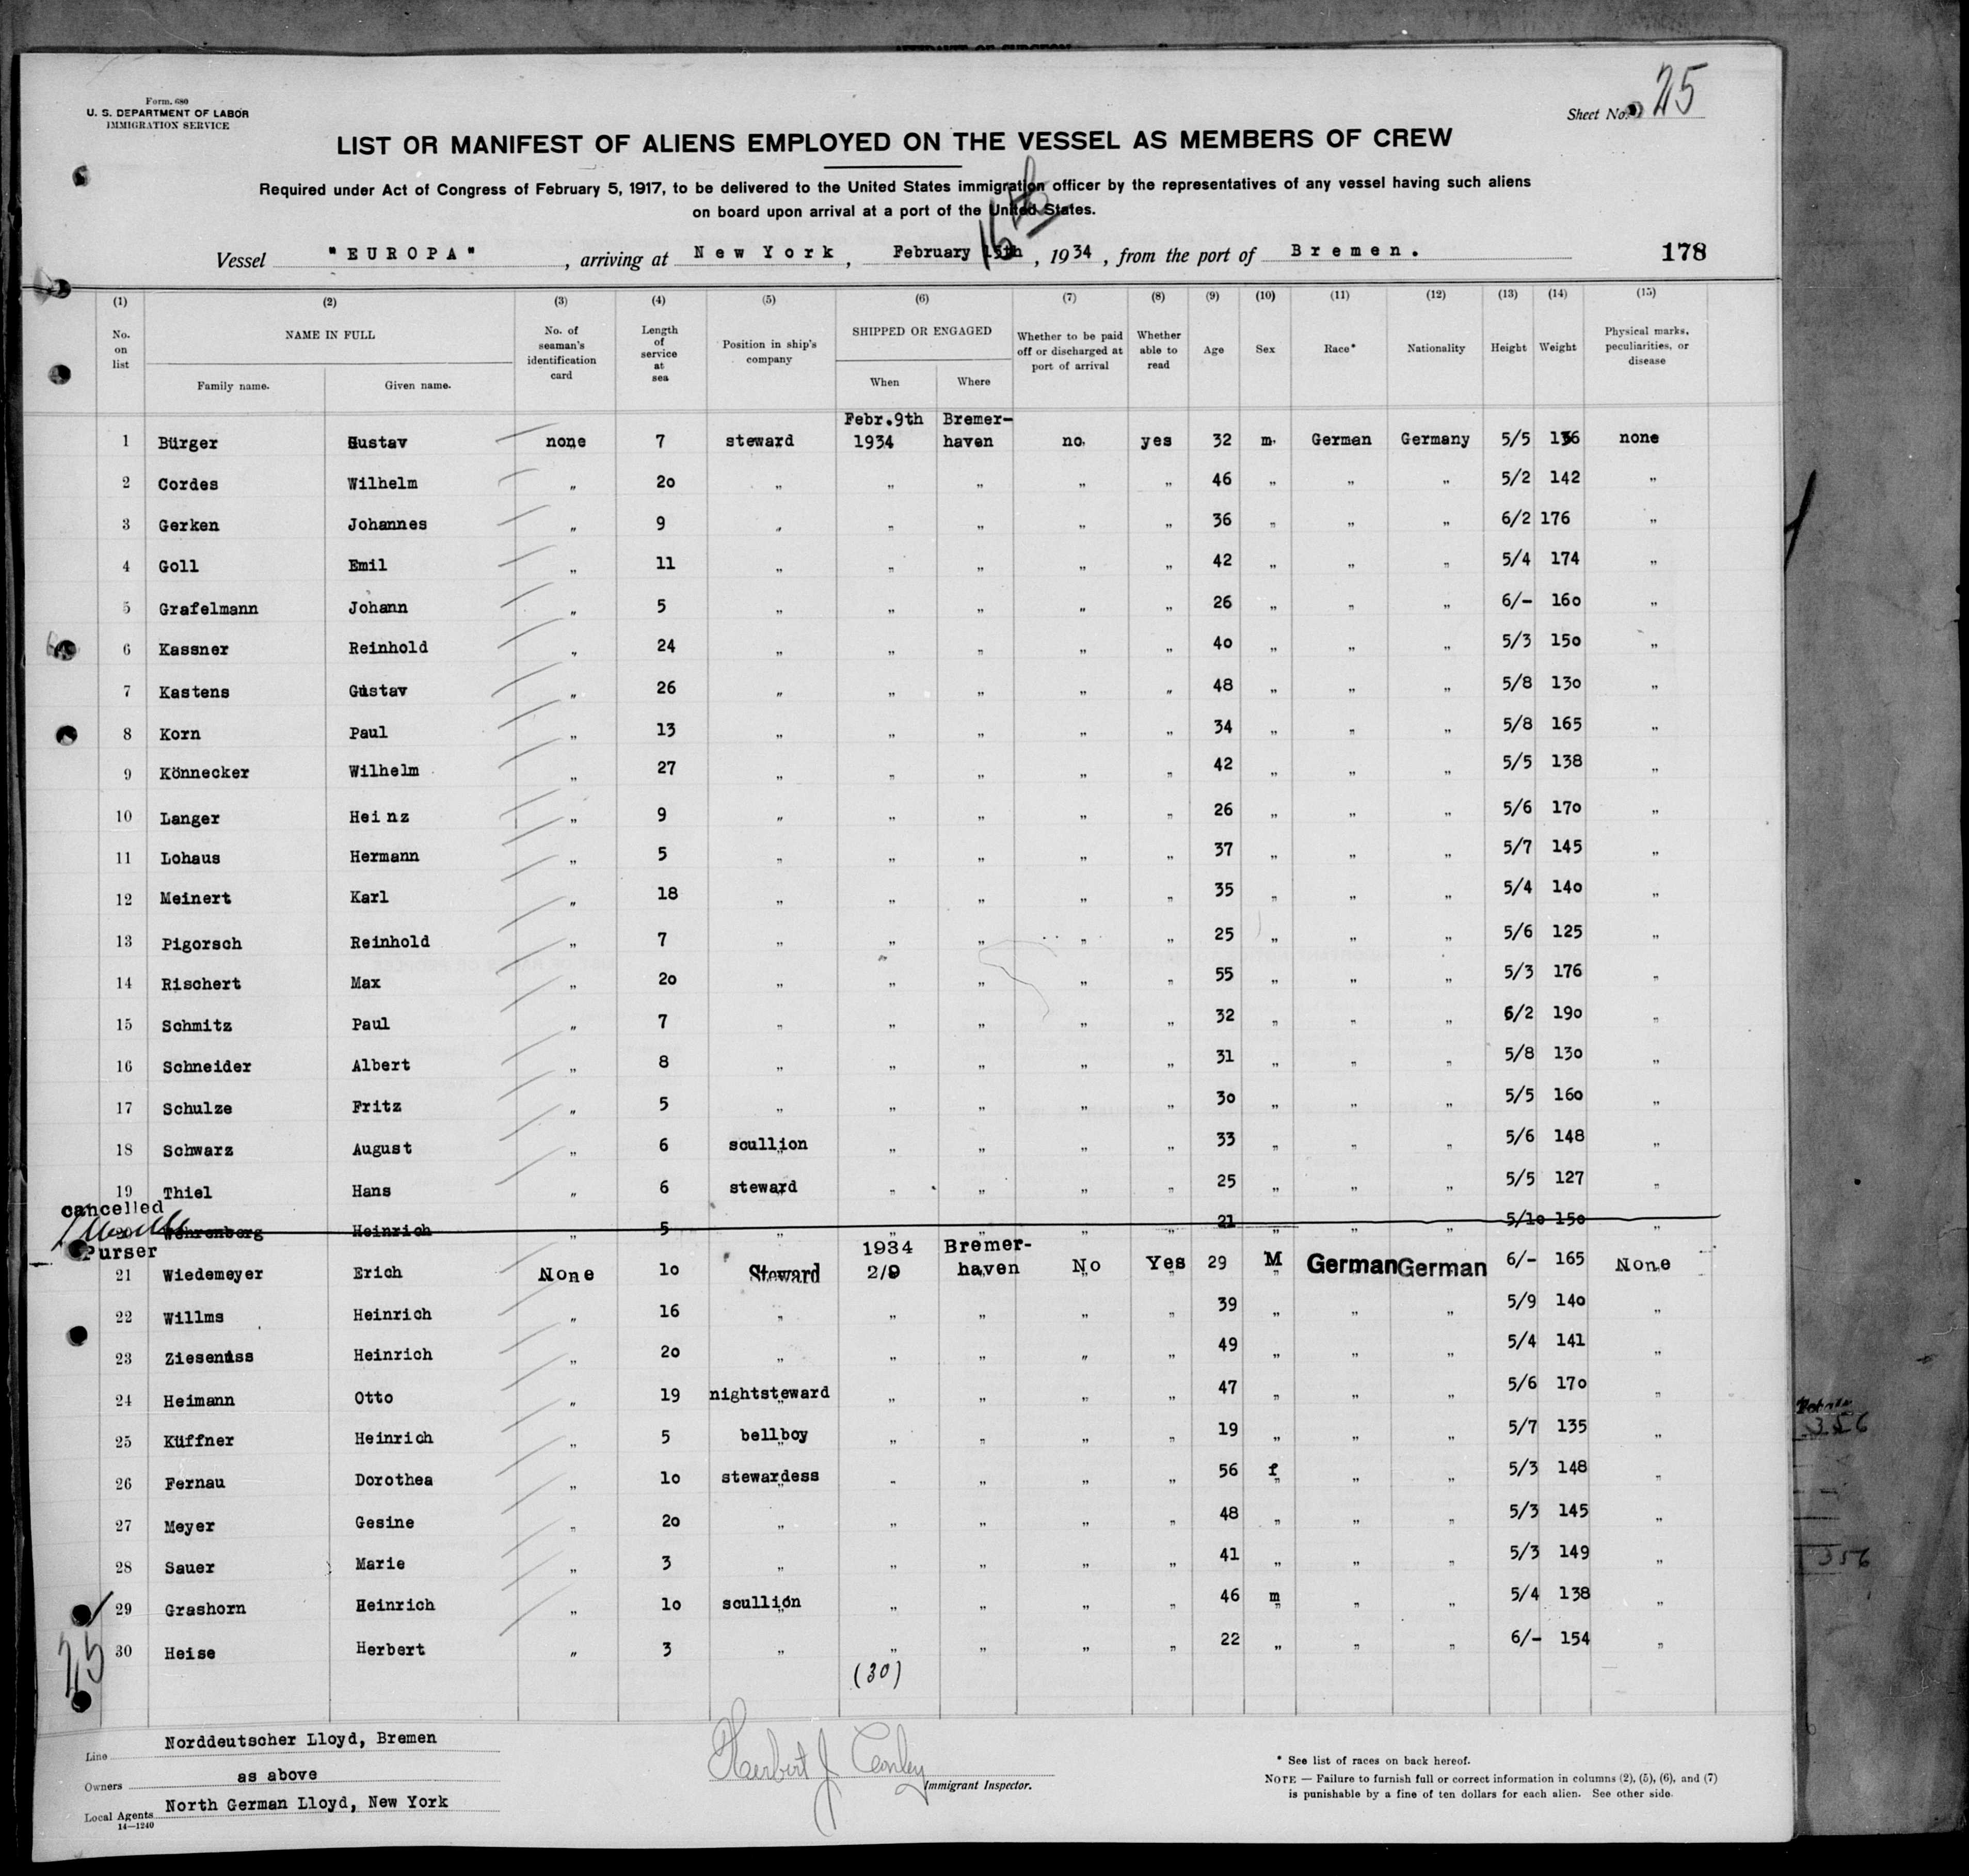 Form. 680
U. S. DEPARTMENT OF LABOR
IMMIGRATION SERVICE
Sheet No. 25
LIST OR MANIFEST OF ALIENS EMPLOYED ON THE VESSEL AS MEMBERS OF CREW
Required under Act of Congress of February 5, 1917, to be delivered to the United States immigration officer by the representatives of any vessel having such aliens
on board upon arrival at a port of the United States.
Vessel "EUROPA", arriving at New York, February 15th 16th, 1934, from the port of Bremen. 178
(1) (2) (3) (4) (5) (6) (7) (8) (9) (10) (11) (12) (13) (14) (15)
No. on list NAME IN FULL Family name. Given name. No. of seaman's identification card Length of service at sea Position in ship's company SHIPPED OR ENGAGED When Where Whether to be paid off or discharged at port of arrival Whether able to read Age Sex Race* Nationality Height Weight Physical marks, peculiarities, or disease
Febr.9th Bremer-
1 Bürger Gustav none 7 steward 1934 haven no. yes 32 m. German Germany 5/5 136 none
2 Cordes Wilhelm „ 20 „ „ „ „ „ 46 „ „ „ 5/2 142 „
3 Gerken Johannes „ 9 „ „ „ „ „ 36 „ „ „ 6/2 176 „
4 Goll Emil „ 11 „ „ „ „ „ 42 „ „ „ 5/4 174 „
5 Grafelmann Johann „ 5 „ „ „ „ „ 26 „ „ „ 6/- 160 „
6 Kassner Reinhold „ 24 „ „ „ „ „ 40 „ „ „ 5/3 150 „
7 Kastens Gustav „ 26 „ „ „ „ „ 48 „ „ „ 5/8 130 „
8 Korn Paul „ 13 „ „ „ „ „ 34 „ „ „ 5/8 165 „
9 Könnecker Wilhelm „ 27 „ „ „ „ „ 42 „ „ „ 5/5 138 „
10 Langer Heinz „ 9 „ „ „ „ „ 26 „ „ „ 5/6 170 „
11 Lohaus Hermann „ 5 „ „ „ „ „ 37 „ „ „ 5/7 145 „
12 Meinert Karl „ 18 „ „ „ „ „ 35 „ „ „ 5/4 140 „
13 Pigorsch Reinhold „ 7 „ „ „ „ „ 25 „ „ „ 5/6 125 „
14 Rischert Max „ 20 „ „ „ „ „ 55 „ „ „ 5/3 176 „
15 Schmitz Paul „ 7 „ „ „ „ „ 32 „ „ „ 6/2 190 „
16 Schneider Albert „ 8 „ „ „ „ „ 31 „ „ „ 5/8 130 „
17 Schulze Fritz „ 5 „ „ „ „ „ 30 „ „ „ 5/5 160 „
18 Schwarz August „ 6 scullion „ „ „ „ 33 „ „ „ 5/6 148 „
19 Thiel Hans „ 6 steward „ „ „ „ 25 „ „ „ 5/5 127 „
cancelled
20 Wehrenberg Heinrich „ 5 „ „ „ „ „ 21 „ „ „ 5/10 150 „
Purser 1934 Bremer-
21 Wiedemeyer Erich None 10 Steward 2/9 haven No Yes 29 M German German 6/- 165 None
22 Willms Heinrich „ 16 „ „ „ „ „ 39 „ „ „ 5/9 140 „
23 Zieseniss Heinrich „ 20 „ „ „ „ „ 49 „ „ „ 5/4 141 „
24 Heimann Otto „ 19 nightsteward „ „ „ „ 47 „ „ „ 5/6 170 „
25 Küffner Heinrich „ 5 bellboy „ „ „ „ 19 „ „ „ 5/7 135 „
26 Fernau Dorothea „ 10 stewardess „ „ „ „ 56 f „ „ 5/3 148 „
27 Meyer Gesine „ 20 „ „ „ „ „ 48 „ „ „ 5/3 145 „
28 Sauer Marie „ 3 „ „ „ „ „ 41 „ „ „ 5/3 149 „
29 Grashorn Heinrich „ 10 scullion „ „ „ „ 46 m „ „ 5/4 138 „
30 Heise Herbert „ 3 „ „ „ „ „ 22 „ „ „ 6/- 154 „
25
(30)
356
356
Line Norddeutscher Lloyd, Bremen
Owners as above
Local Agents North German Lloyd, New York
14—1240
Herbert J Conley
Immigrant Inspector.
* See list of races on back hereof.
NOTE — Failure to furnish full or correct information in columns (2), (5), (6), and (7)
is punishable by a fine of ten dollars for each alien. See other side.